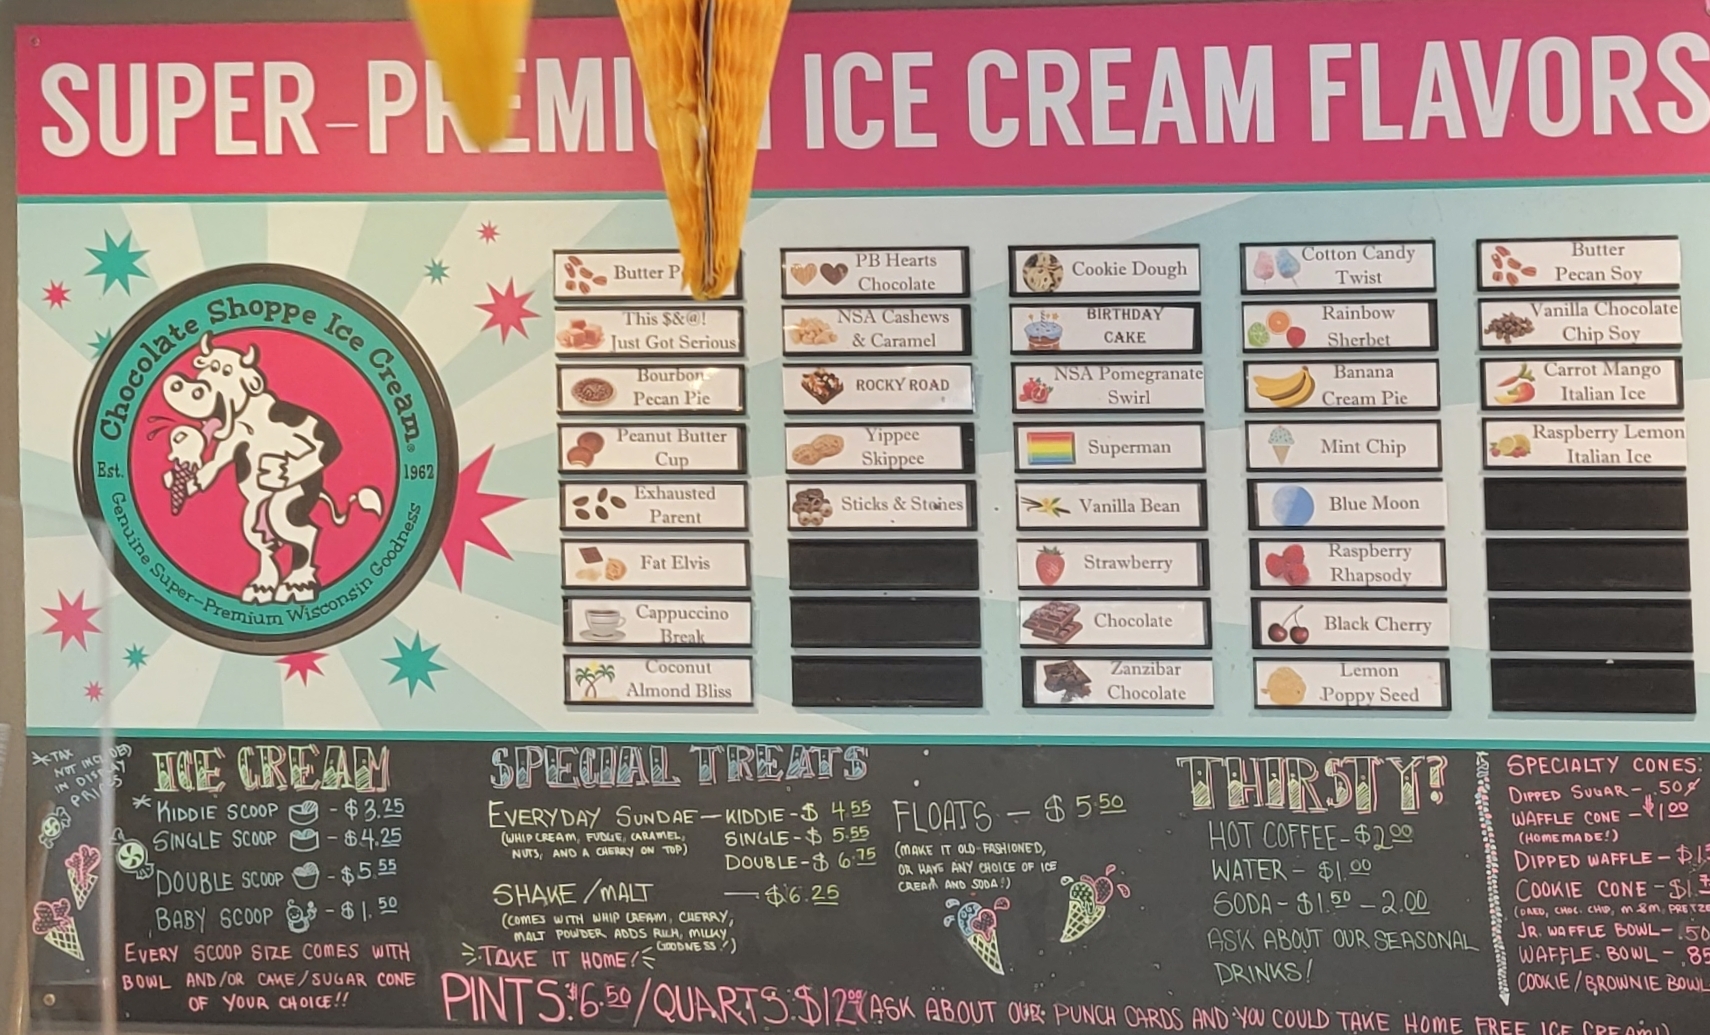 SUPER-PREMIUM ICE CREAM FLAVORS
Chocolate Shoppe Ice Cream®
Est. 1962
Genuine Super-Premium Wisconsin Goodness
Butter
This $&@!
Just Got Serious
Bourbon
Pecan Pie
Peanut Butter
Cup
Exhausted
Parent
Fat Elvis
Cappuccino
Break
Coconut
Almond Bliss
PB Hearts
Chocolate
NSA Cashews
& Caramel
ROCKY ROAD
Yippee
Skippee
Sticks & Stones
Cookie Dough
BIRTHDAY
CAKE
NSA Pomegranate
Swirl
Superman
Vanilla Bean
Strawberry
Chocolate
Zanzibar
Chocolate
Cotton Candy
Twist
Rainbow
Sherbet
Banana
Cream Pie
Mint Chip
Blue Moon
Raspberry
Rhapsody
Black Cherry
Lemon
Poppy Seed
Butter
Pecan Soy
Vanilla Chocolate
Chip Soy
Carrot Mango
Italian Ice
Raspberry Lemon
Italian Ice
*TAX
NOT INCLUDED
IN DISPLAY
PRICES
ICE CREAM
*KIDDIE SCOOP - $3.25
SINGLE SCOOP - $4.25
DOUBLE SCOOP - $5.55
BABY SCOOP - $1.50
EVERY SCOOP SIZE COMES WITH
BOWL AND/OR CAKE/SUGAR CONE
OF YOUR CHOICE!!
SPECIAL TREATS
EVERYDAY SUNDAE — KIDDIE - $ 4.55
(WHIP CREAM, FUDGE, CARAMEL,
NUTS, AND A CHERRY ON TOP)
SINGLE - $ 5.55
DOUBLE - $ 6.75
SHAKE/MALT — $6.25
(COMES WITH WHIP CREAM, CHERRY,
MALT POWDER ADDS RICH, MILKY
GOODNESS!)
TAKE IT HOME!
PINTS: $6.50/QUARTS: $12.00 (ASK ABOUT OUR PUNCH CARDS AND YOU COULD TAKE HOME FREE ICE CREAM!)
FLOATS — $5.50
(MAKE IT OLD-FASHIONED,
OR HAVE ANY CHOICE OF ICE
CREAM AND SODA!)
THIRSTY?
HOT COFFEE - $2.00
WATER - $1.00
SODA - $1.50 - 2.00
ASK ABOUT OUR SEASONAL
DRINKS!
SPECIALTY CONES:
DIPPED SUGAR - .50¢
WAFFLE CONE - $1.00
(HOMEMADE!)
DIPPED WAFFLE - $1
COOKIE CONE - $1.
(OREO, CHOC. CHIP, M&M, PRETZE
JR. WAFFLE BOWL - .50
WAFFLE BOWL - .85
COOKIE/BROWNIE BOWL